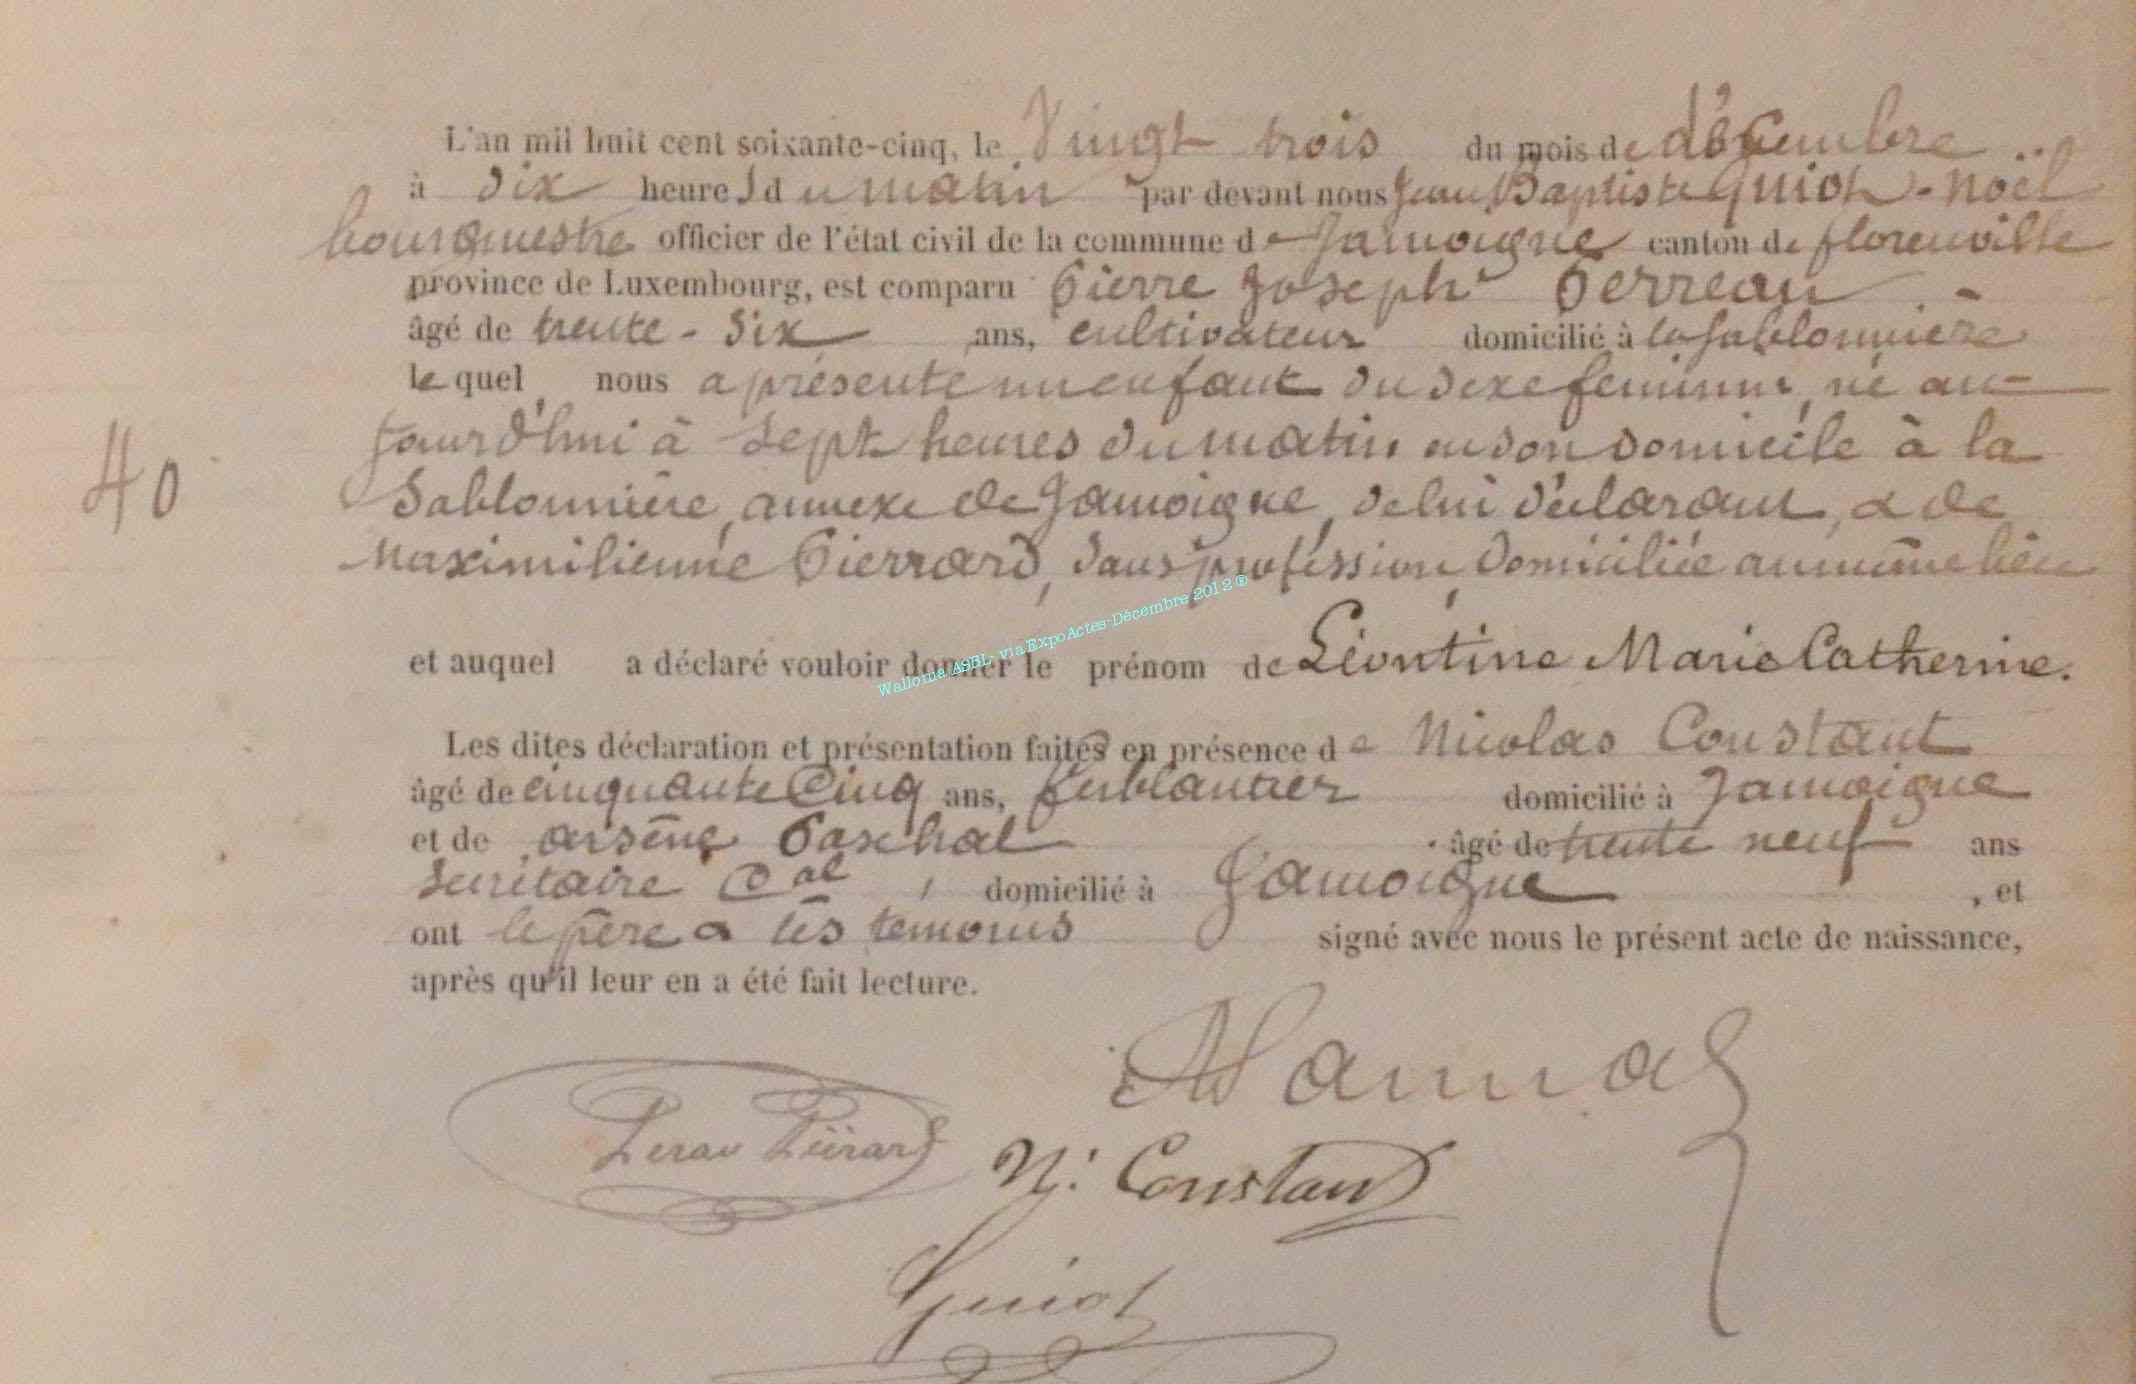 L'an mil huit cent soixante-cinq, le Vingt trois du mois de décembre
à dix heures du matin par devant nous Jean Baptiste Guiot-Noël
bourgmestre officier de l'état civil de la commune de Jamoigne canton de florenville
province de Luxembourg, est comparu Pierre Joseph Perreau
âgé de trente-six ans, cultivateur domicilié à la Sablonnière
le quel nous a présenté un enfant du sexe féminin, né au-
jourd'hui à sept heures du matin en son domicile à la
Sablonnière, annexe de Jamoigne, de lui déclarant, & de
Maximilienne Pierrard, sans profession, domiciliée au même lieu
40
et auquel a déclaré vouloir donner le prénom de Léontine Marie Catherine.
Wallonia ASBL via ExpoActes-Décembre 2012®
Les dites déclaration et présentation faites en présence de Nicolas Constant
âgé de cinquante cinq ans, ferblantier domicilié à Jamoigne
et de arsène Paschal âgé de trente neuf ans
secrétaire Cal, domicilié à Jamoigne, et
ont le père & les témoins signé avec nous le présent acte de naissance,
après qu'il leur en a été fait lecture.
N. Constant
Guiot